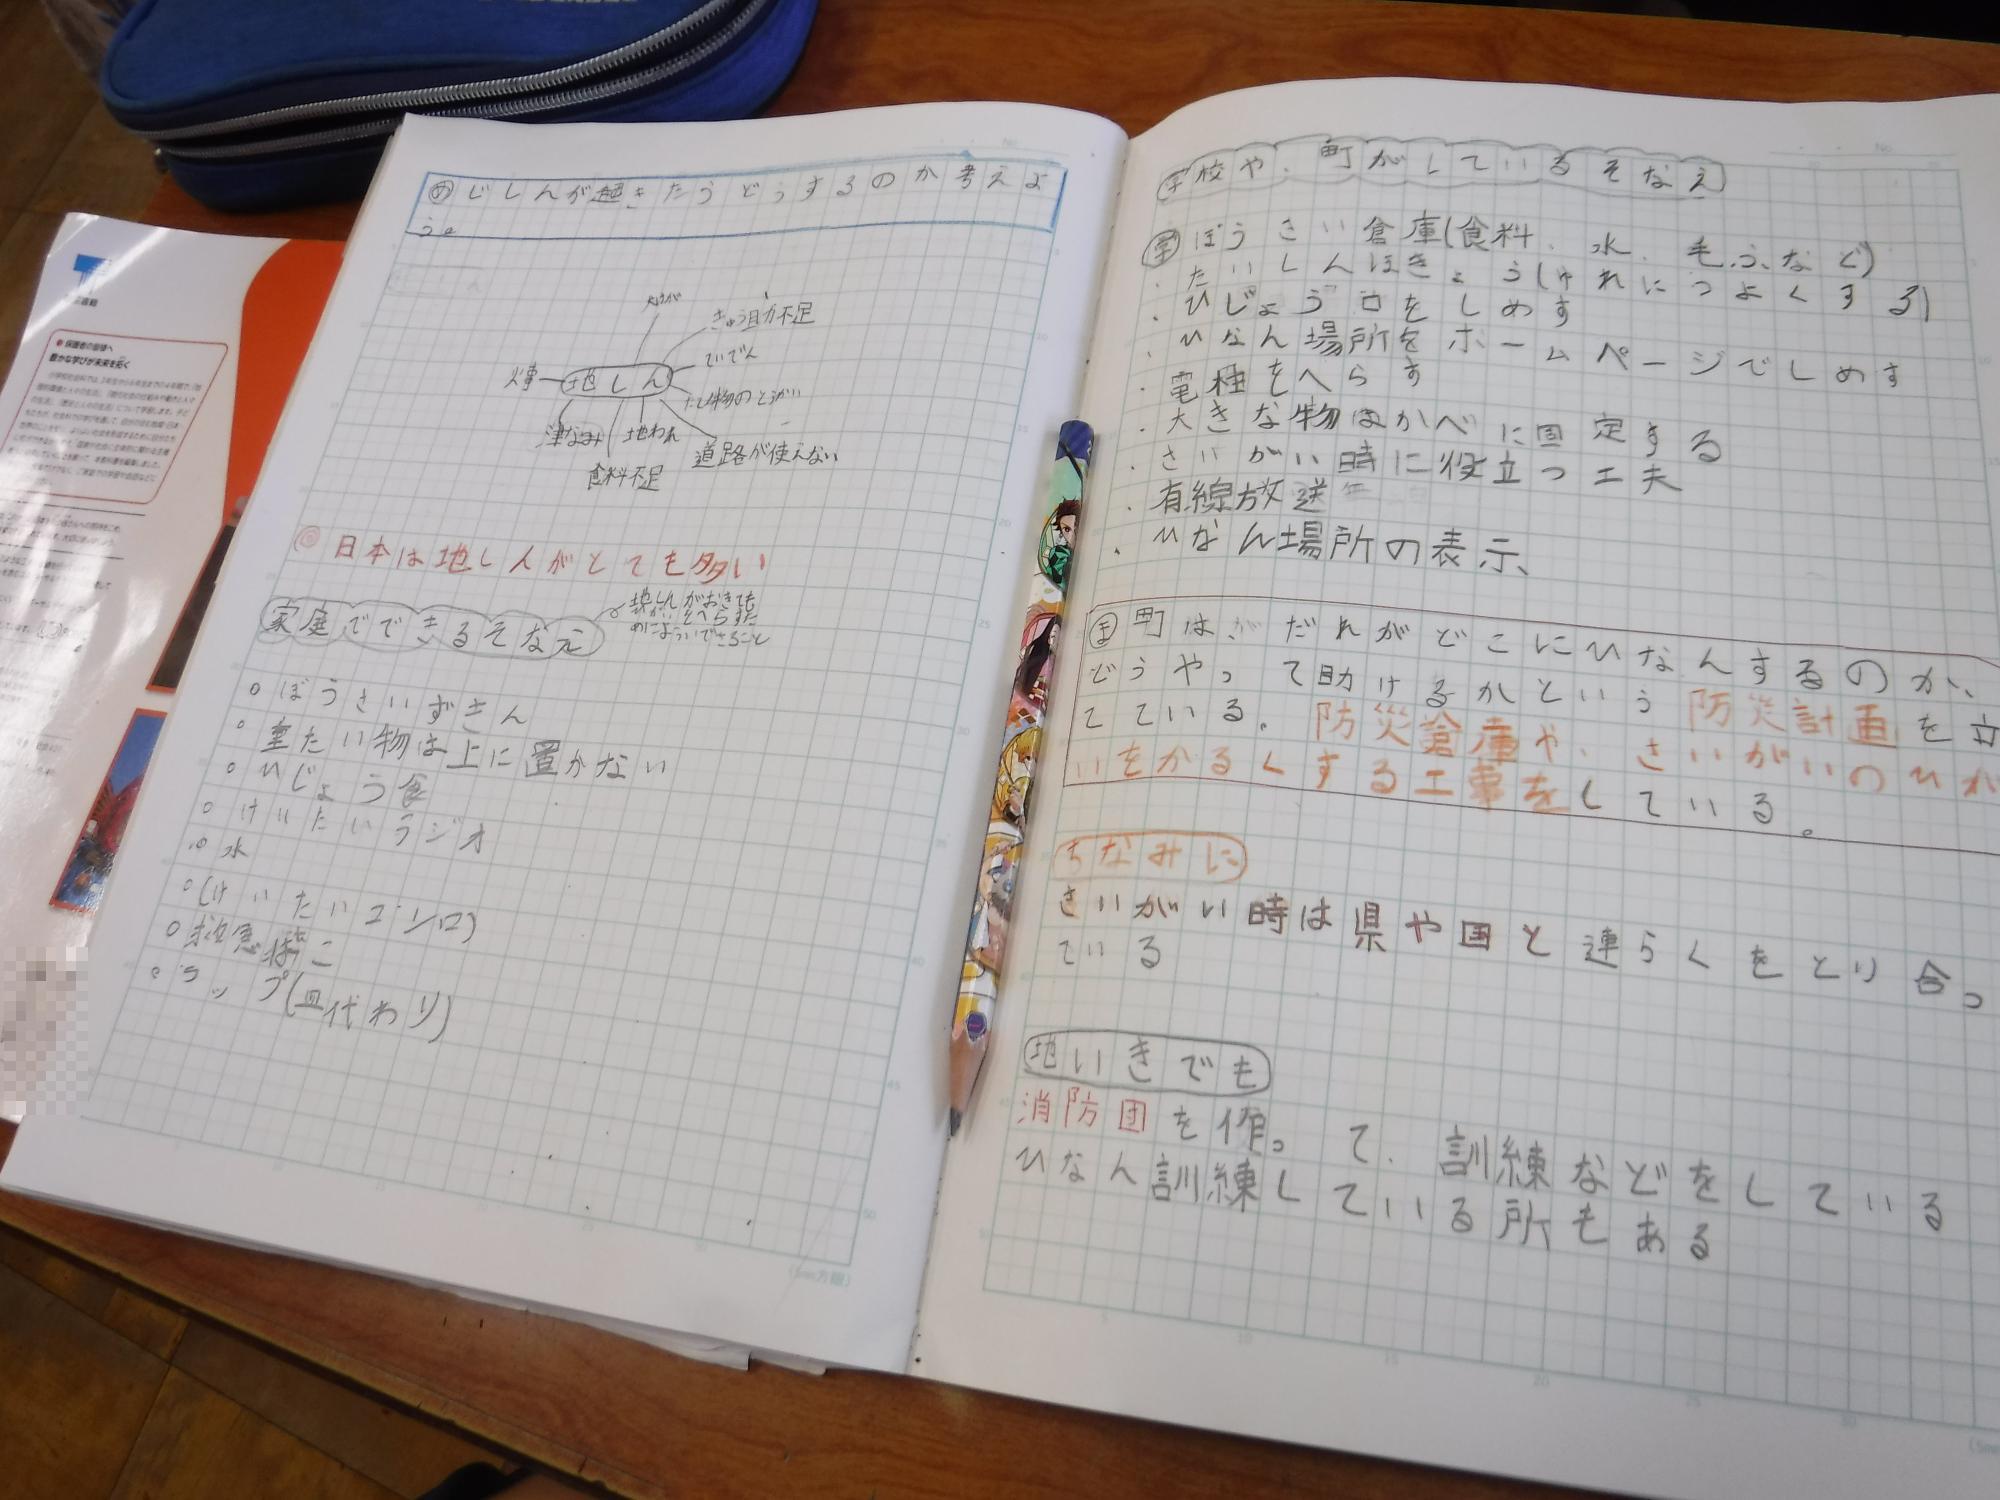 め じしんが起きたらどうするのか考えよ
う。
大けが
きゅう助力不足
ていでん
火事
地しん
たて物のとうかい
津なみ
地われ
道路が使えない
食料不足
◎ 日本は地しんがとても多い
家庭でできるそなえ
地しんがおきても
がいをへらすた
めにようい できること
○ ぼうさいずきん
○ 重たい物は上に置かない
○ ひじょう食
○ けいたいラジオ
○ 水
○ (けいたいコンロ)
○ 救急ばこ
○ ラップ(皿代わり)
学校や、町がしているそなえ
学 ぼうさい倉庫(食料、水、毛ふ、など)
・たいしんほきょう(ゆれにつよくする)
・ひじょう口をしめす
・ひなん場所をホームページでしめす
・電柱をへらす
・大きな物はかべに固定する
・さいがい時に役立つ工夫
・有線放送
・ひなん場所の表示、
ま 町は だれがどこにひなんするのか、
どうやって助けるかという防災計画を立
てている。防災倉庫や、さいがいのひが
いをかるくする工事をしている。
ちなみに
さいがい時は県や国と連らくをとり合っ
ている
地いきでも
消防団を作って、訓練などをしている
ひなん訓練している所もある
(5mm方眼)
保護者の皆様へ
豊かな学びが未来を拓く